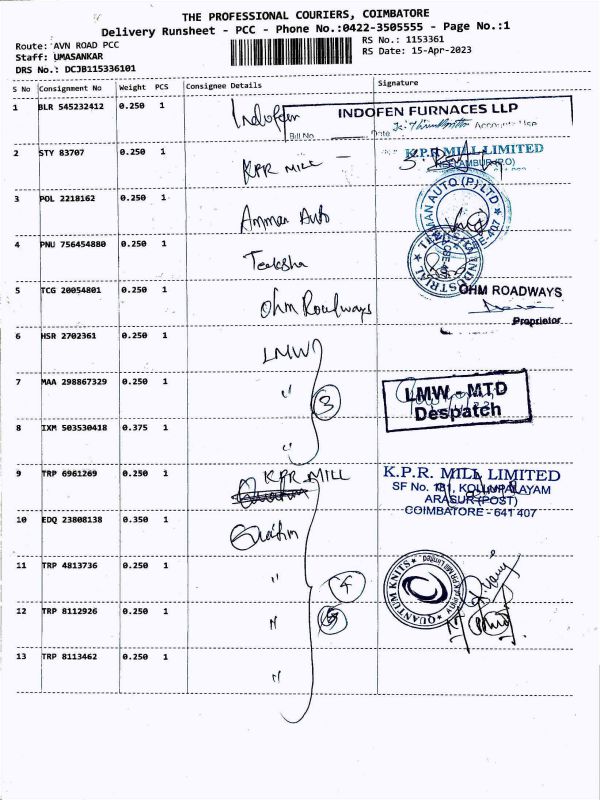 THE PROFESSIONAL COURIERS, COIMBATORE
Delivery Runsheet - PCC - Phone No.:0422-3505555 - Page No.:1
Route: AVN ROAD PCC
RS No.: 1153361
Staff: UMASANKAR
RS Date: 15-Apr-2023
DRS No.: DCJB115336101
S No Consignment No Weight PCS Consignee Details Signature
1 BLR 545232412 0.250 1 Indofen
INDOFEN FURNACES LLP
Bill No Date Accounts Use
2 STY 83707 0.250 1 KPR MILL
K.P.R MILL LIMITED
3 POL 2218162 0.250 1 Amman Auto
4 PNU 756454880 0.250 1
5 TCG 20054801 0.250 1 Ohm Roadways
OHM ROADWAYS
Proprietor
6 HSR 2702361 0.250 1 LMW
7 MAA 298867329 0.250 1 " 3
LMW - MTD
Despatch
8 IXM 503530418 0.375 1 "
9 TRP 6961269 0.250 1 KPR MILL
K.P.R. MILL LIMITED
SF No. 181, KOLLUPALAYAM
ARASUR (POST)
COIMBATORE - 641 407
10 EDQ 23808138 0.350 1
11 TRP 4813736 0.250 1 " 4
QUANTUM KNITS
12 TRP 8112926 0.250 1 "
13 TRP 8113462 0.250 1 "